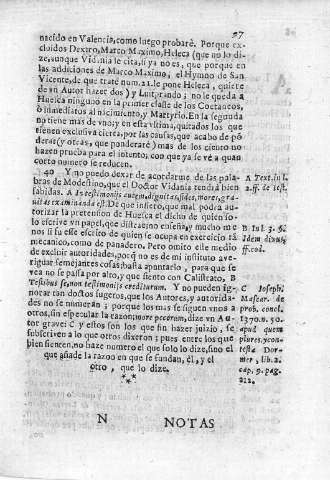 97
nacido en Valencia, como luego probarè. Porque ex-
cluidos Dextro, Marco Maximo, Heleca (que no lo di-
ze, aunque Vidania le cita, si ya no es, que porque en
las addiciones de Marco Maximo, el Hymno de San
Vicente, de que tratè num. 21. le pone Heleca, quiere
de vn Autor hazer dos) y Luitprando; no le queda à
Huesca ninguno en la primer classe de los Coetaneos,
ò inmediatos al nacimiento, y Martyrio. En la segunda
no tiene mas de vno; y en esta vltima, quitados los que
tienen exclusiva cierta, por las causas, que acabo de pó-
derar (y otras, que ponderarè) mas de los ciento no
hazen prueba para el intento, con que ya se vè a quan
corto numero se reducen.
40 Y no puedo dexar de acordarme de las pala-
bras de Modestino, que el Doctor Vidania tendrà bien
sabidas. A In testimonijs autem, dignitas, fides, mores, gra-
uitas examinanda est. De que infiero, que mal podrà au-
torizar la pretension de Huesca el dicho de quien so-
lo escrive vn papel, que distrae, no enseña, y mucho me
nos si su este escrito de quien se ocupa en exercicio tã
mecanico, como de panadero. Pero omito este medio
de excluir autoridades, porque no es de mi instituto ave-
riguar semejantes cosas: basta apuntarlo, para que se
vea no se passa por alto, y que siento con Calistrato, B
Testibus se, non testimonijs crediturum. Y no pueden ig-
norar tan doctos sugetos, que los Autores, y autorida-
des no se numeran; porque los mas se siguen vnos a
otros, sin especular la razon; more pecorum, dize vn Au-
tor grave: C y estos son los que sin hazer juizio, se
subscriven a lo que otros dixeron; pues entre los que
bien sienten, no haze numero el que solo lo dize, sino el
que añade la razon en que se fundan, èl, y el
otro, que lo dize.
***
A Text. in l.
2. ff. de test.
B In l. 3. §.
Idem divus,
ff. eod.
C Joseph.
Mascar. de
prob. concl.
1370. n. 50.
apud quem
plures. y con-
testa Dor-
mer, lib. 2.
cap. 9. pag.
212.
N NOTAS